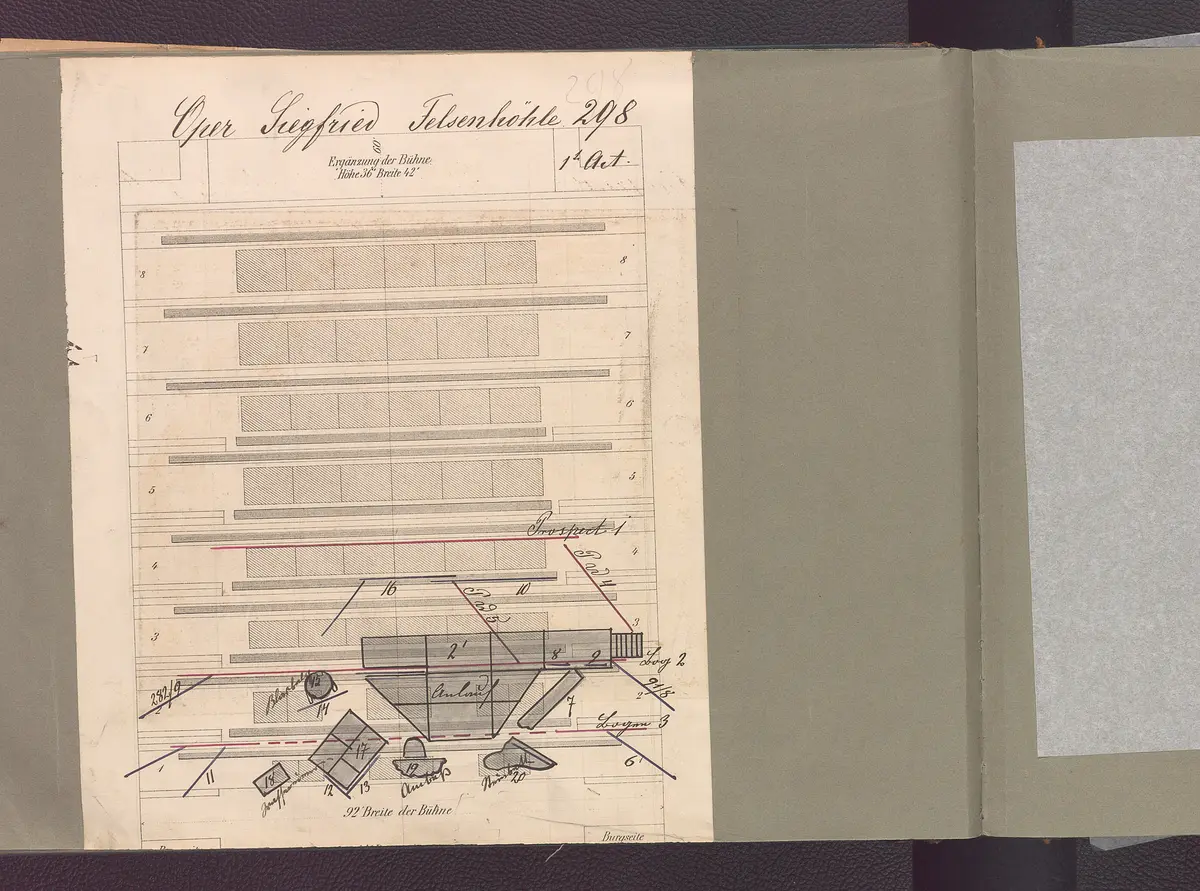 298
Oper Siegfried Felsenhöhle 298
60'
Ergänzung der Bühne.
Höhe 36" Breite 42'
1t Act.
8 8
7 7
6 6
5 5
Prospect 1
4 4
16 10
3 3
2' 8 9
Bog 2
282/9
2
Blasebalg 15
14
Anlauf
7
918
2
Bogen 3
1 11
18 17 12 13
19
Ambuß
20
6
92' Breite der Bühne
Burgseite